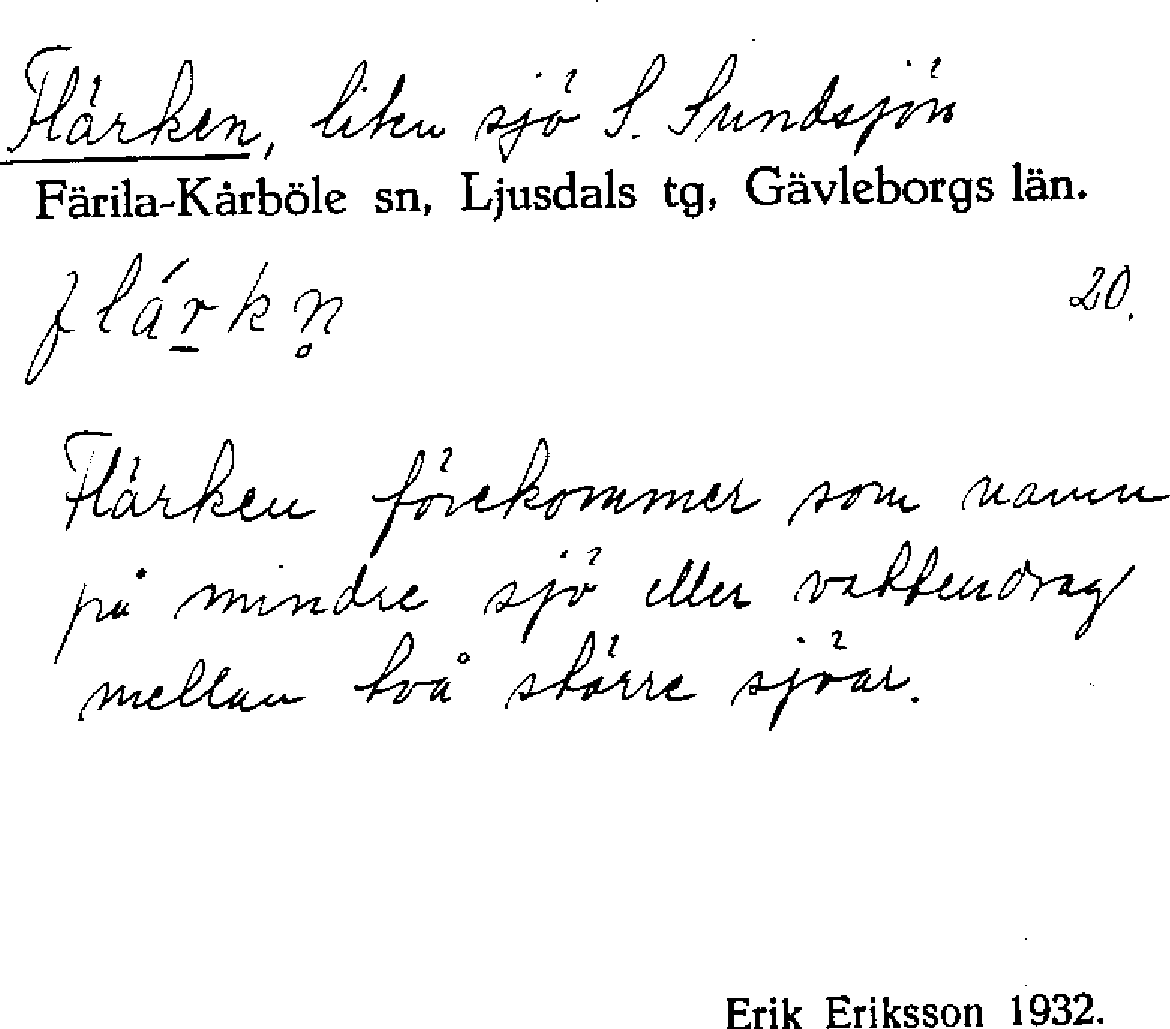 Flärken, liten sjö S. Sundsjön
Färila-Kårböle sn, Ljusdals tg, Gävleborgs län.
flä́rkn̥
20.
Flärken förekommer som namn
på mindre sjö eller vattendrag
mellan två större sjöar.
Erik Eriksson 1932.